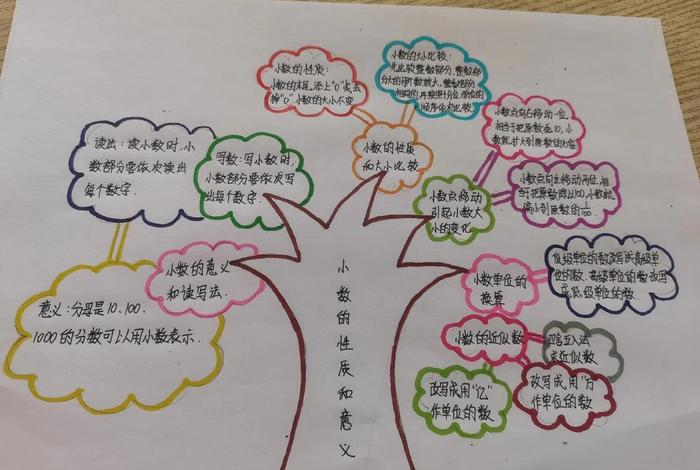 小数的性质:
小数的末尾添上"0"或去
掉"0",小数的大小不变
小数的大小比较:
先比较整数部分,整数部
分大的那个数就大,整数部分
相同的再按照十分位、百分位的
顺序依次比较
小数的性质
和大小比较
小数点向右移动一位,
相当于把原数乘10,小
数就扩大到原数的10倍
小数点向左移动两位,相
当于把原数除以100,小数就
缩小到原数的1/100.
小数点移动
引起小数大
小的变化
读出:读小数时,小
数部分要依次读出
每个数字.
写数:写小数时,
小数部分要依次写
出每个数字.
小数的意义
和读写法.
意义:分母是10、100、
1000的分数可以用小数表示.
小数单位的
换算
低级单位的数改写成高级单
位的数、高级单位的数改写
成低级单位的数.
小数的近似数
四舍五入法
求近似数
改写成用"亿"
作单位的数
改写成用"万"
作单位的数
小数的性质和意义